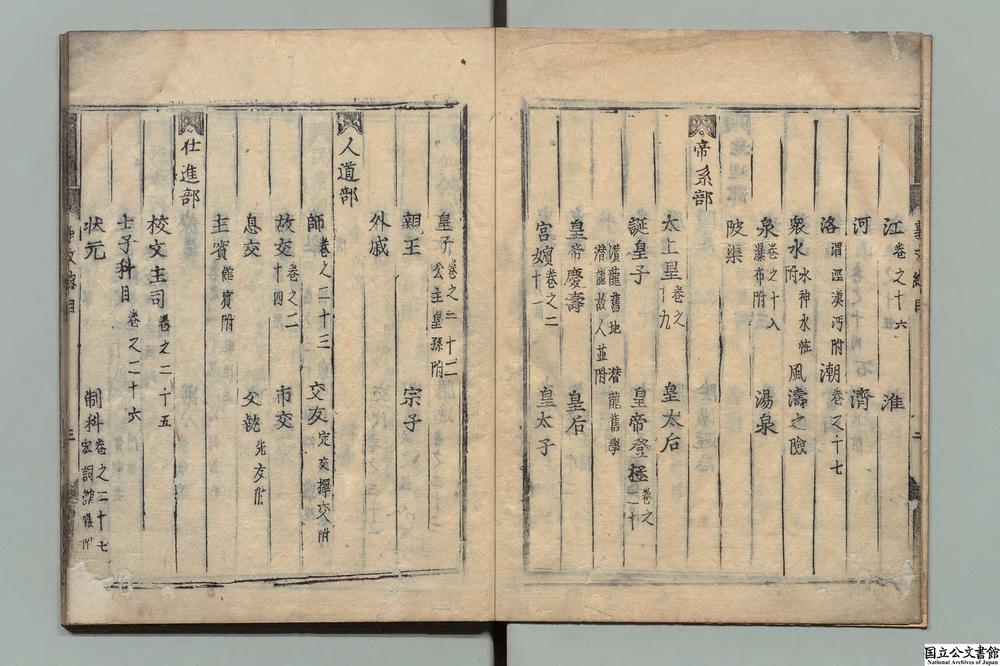 江 卷之十六 淮
河 濟
洛 渭涇漢沔附 潮 卷之十七
衆水 水神水怪附 風濤之險
泉 卷之十八 瀑布附 湯泉
陂渠
帝系部
太上皇 卷之十九 皇太后
誕皇子 潛龍舊地 潛龍舊學 潛龍故人並附 皇帝登極 卷之二十
皇帝慶壽 皇后
宮嬪 卷之二十一 皇太子
皇子 卷之二十二 公主皇孫附 宗子
親王
外戚
人道部
師 卷之二十三 交友 定交擇交附
故交 卷之二十四 市交
息交 交態 死友附
主賓 館賓附
仕進部
校文主司 卷之二十五
士子科目 卷之二十六
狀元 制科 卷之二十七 宏詞
國立公文書館
National Archives of Japan